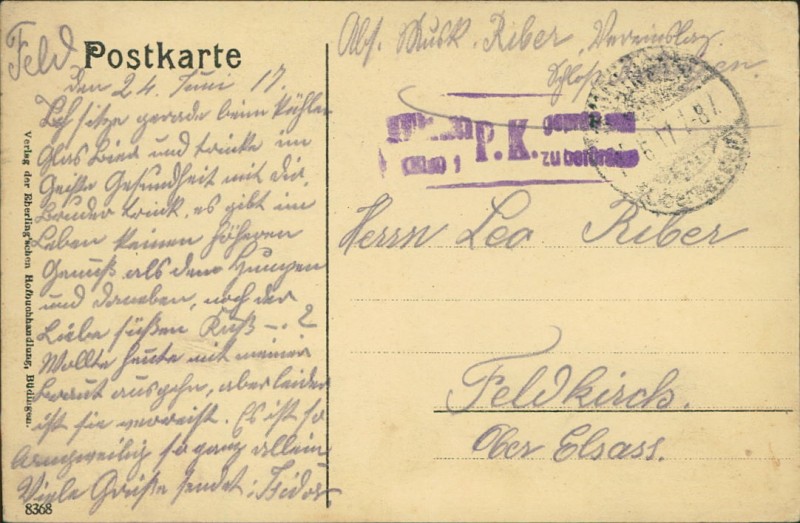 Feld
Postkarte
den 24. Juni 17.
Ich sitze gerade beim kühlen
Glas Bier und trinke im
Geiste Gesundheit mit dir,
Bruder trink, es gibt im
Leben keinen höheren
Genuß als dem Jungen
und daneben, noch der
Liebe süßen Kuß –. 2
Wollte heute mit meiner
Braut ausgehn, aber leider
ist sie verreist. Es ist so
langweilig so ganz allein
Viele Grüße sendet: Isidor
8368
Verlag der Eberling'schen Hofbuchhandlung, Büdingen.
Abs. Musk. Riber, Vereinslaz.
Schloß
P. K.
zu befördern
Herrn Leo Riber
Feldkirch.
Ober Elsass.